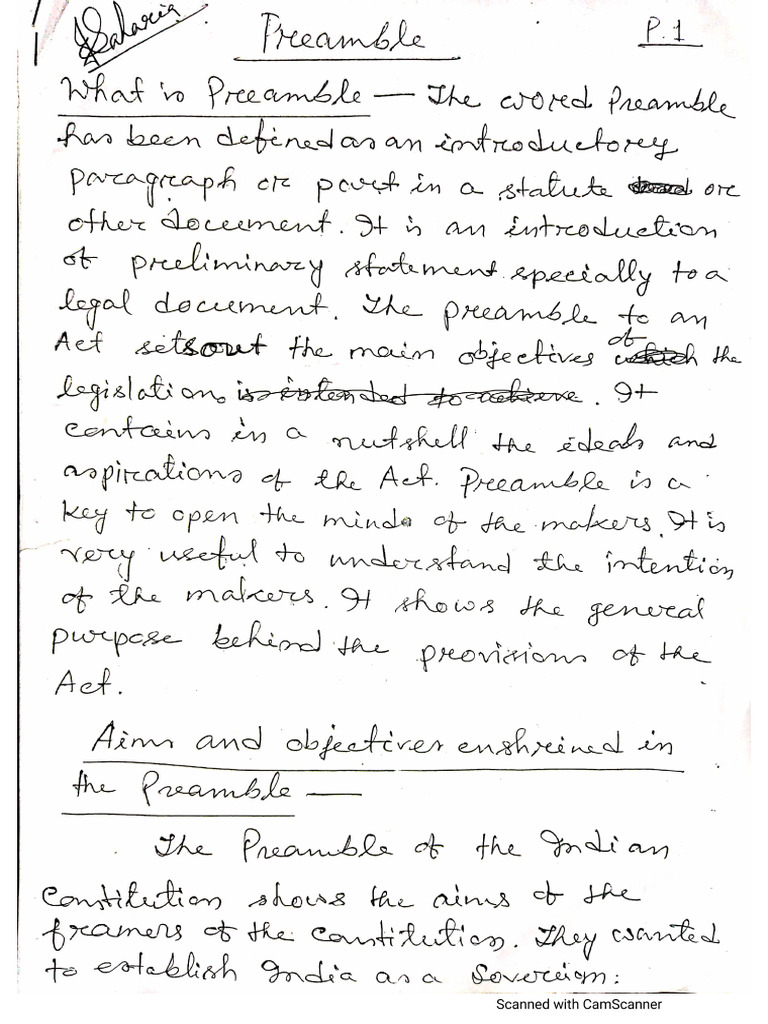 Saharia
Preamble
P.1
What is Preamble — The word Preamble
has been defined as an introductory
paragraph or part in a statute or
other document. It is an introduction
of preliminary statement specially to a
legal document. The preamble to an
Act sets out the main objectives of the
legislation. It
contains in a nutshell the ideals and
aspirations of the Act. Preamble is a
key to open the mind of the makers. It is
very useful to understand the intention
of the makers. It shows the general
purpose behind the provisions of the
Act.
Aims and objectives enshrined in
the Preamble —
The Preamble of the Indian
Constitution shows the aims of the
framers of the constitution. They wanted
to establish India as a Sovereign:
Scanned with CamScanner